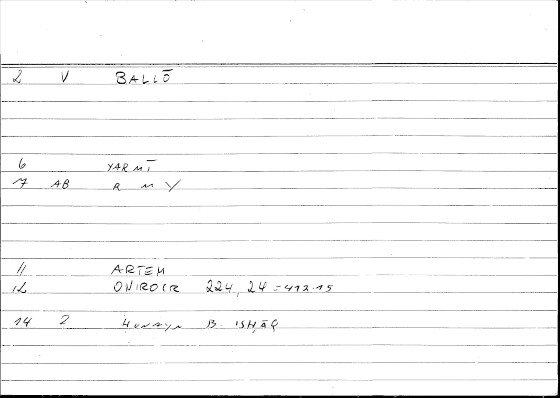 2 V BALLŌ
6 YARMĪ
7 AB R M Y
11 ARTEM
12 ONIROCR 224, 24 = 412.15
14 2 Hunayn B. ISḤĀQ